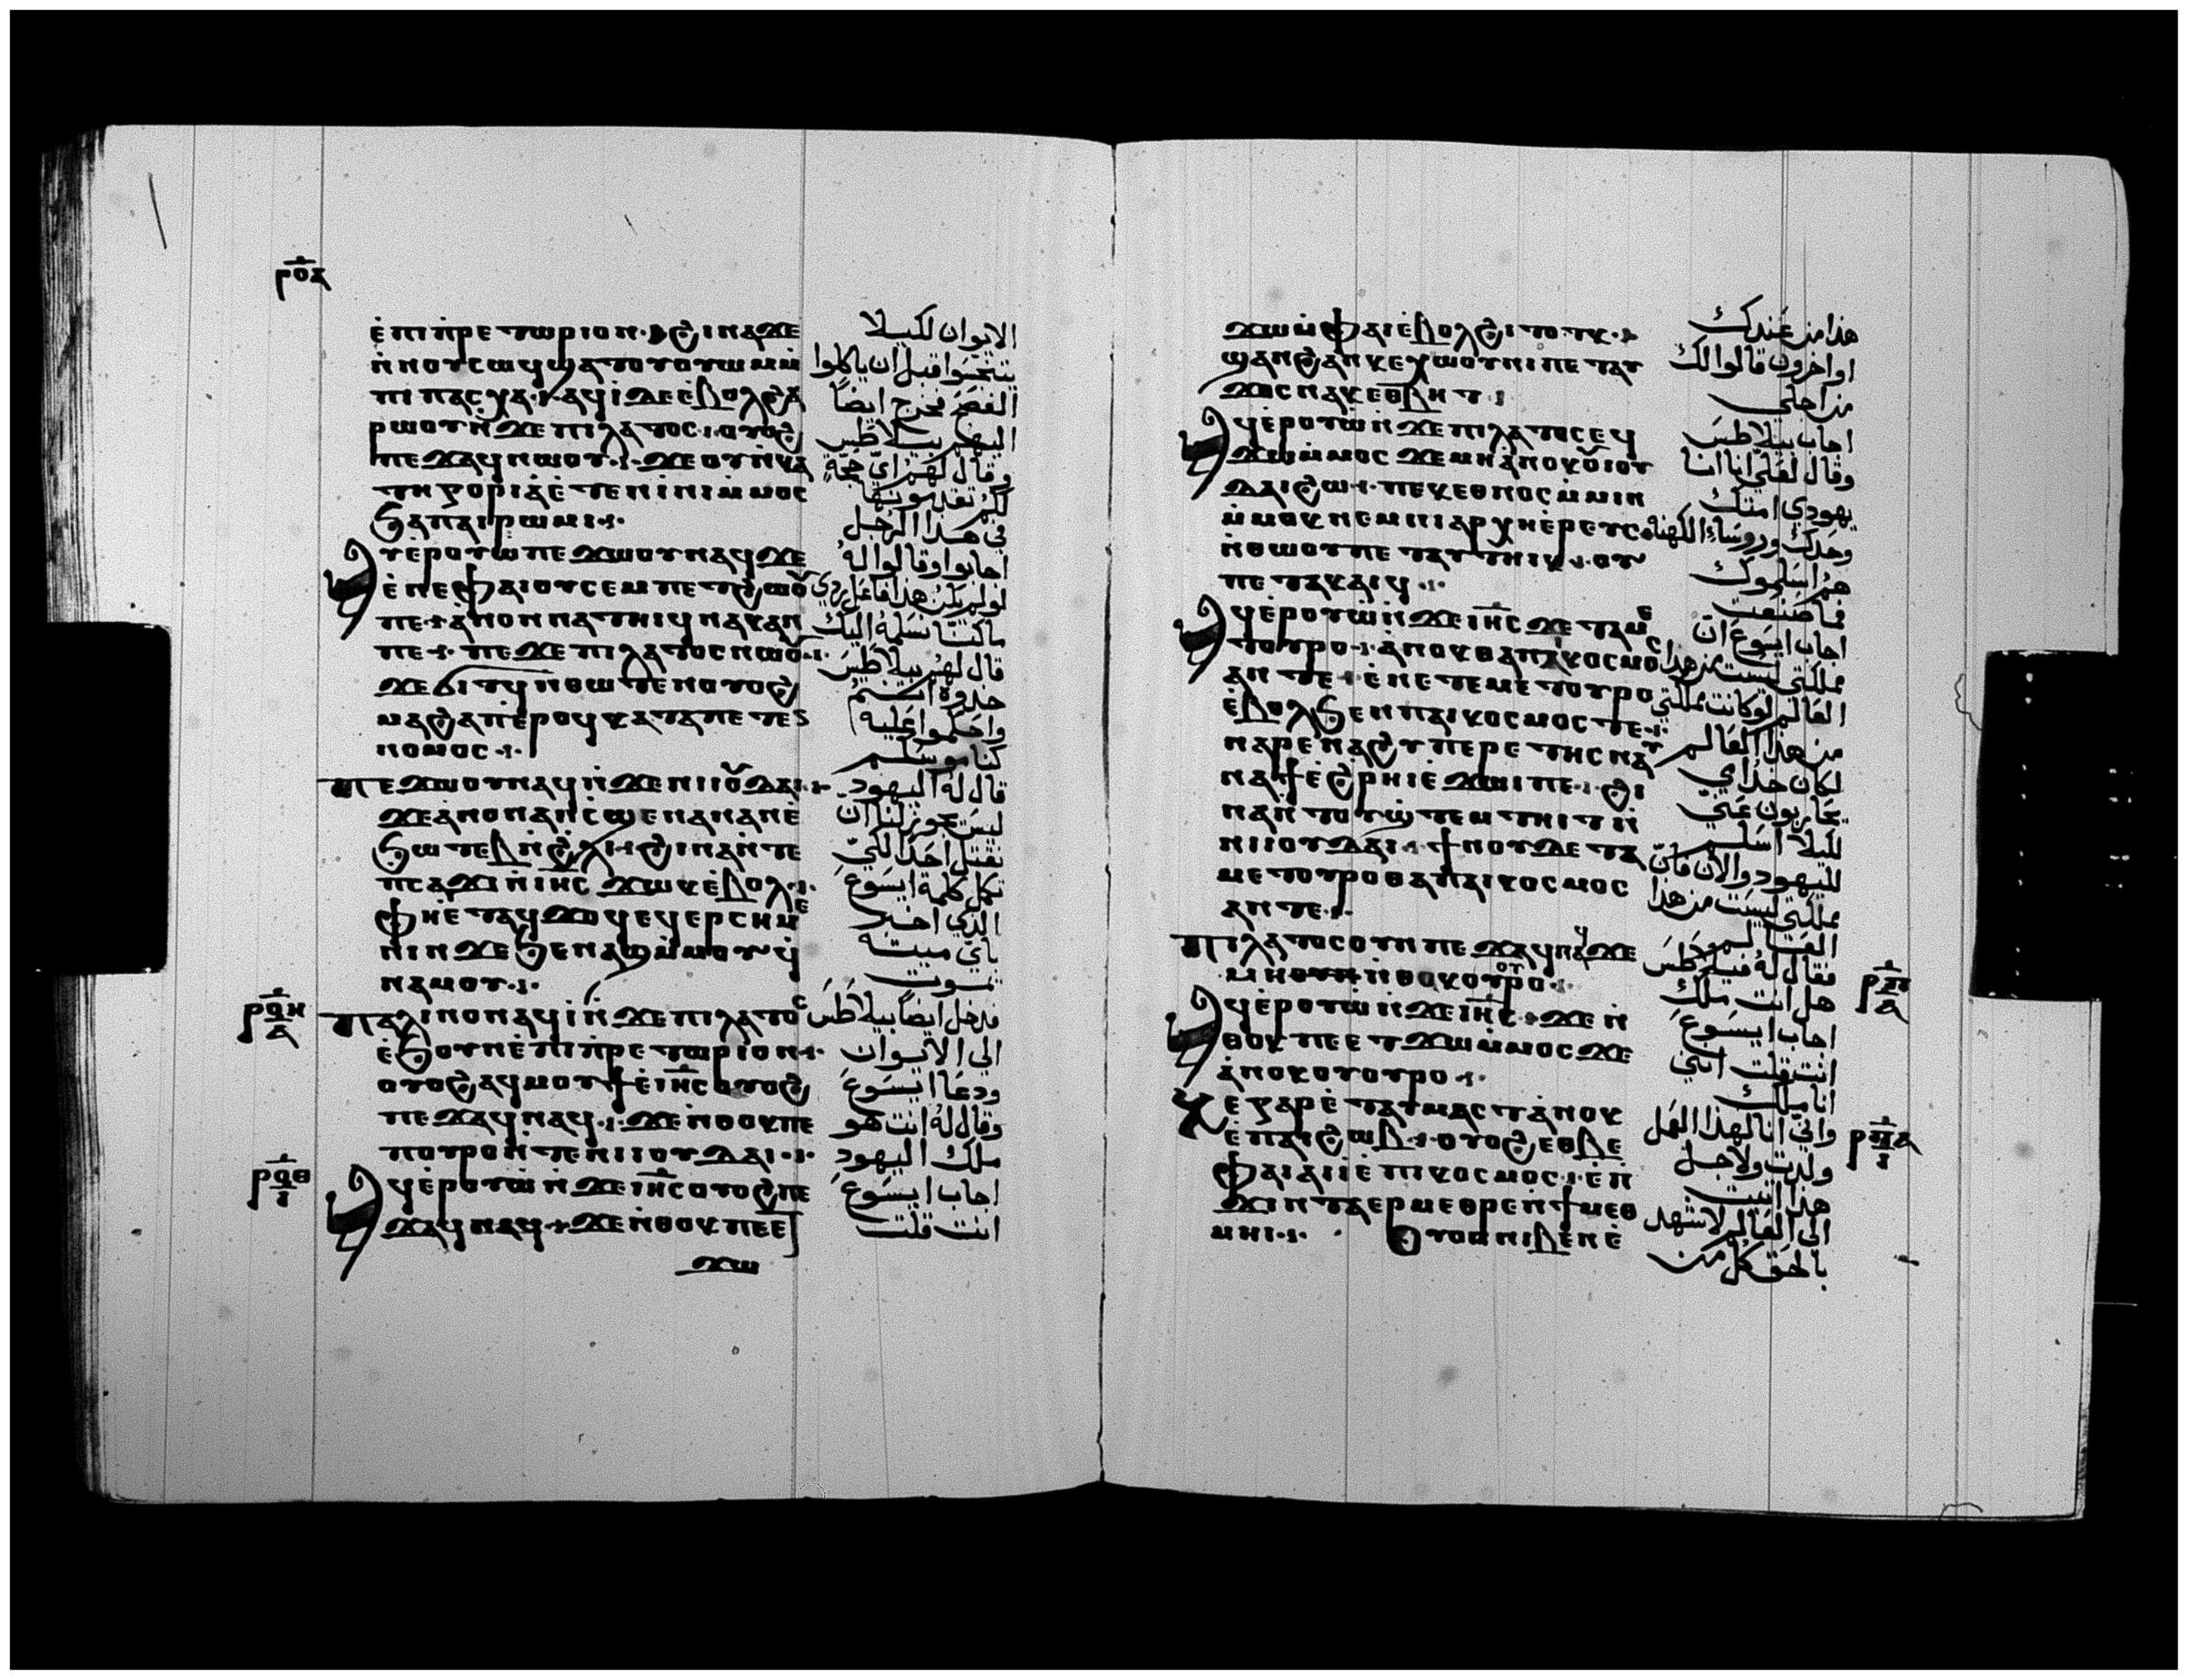 ⲣⲟⲁ
ⲉ̀ⲡⲓⲡ̀ⲣⲉⲧⲱⲣⲓⲟⲛ· ϩⲓⲛⲁϫⲉ
ⲛ̀ⲛⲟⲩⲥⲱϥ ϣⲁⲧⲟⲩⲟⲩⲱⲙ ⲙ̀
ⲡⲓⲡⲁⲥⲭⲁ· ⲁϥⲓ̀ ⲇⲉ ⲉ̀ⲃⲟⲗϩⲁ
ⲣⲱⲟⲩ ⲛ̀ϫⲉ ⲡⲓⲗⲁⲧⲟⲥ· ⲟⲩⲟϩ
ⲡⲉϫⲁϥ ⲛⲱⲟⲩ· ϫⲉ ⲟⲩ ⲛ̀ⲕⲁ
ⲧⲏⲅⲟⲣⲓⲁ ⲉ̀ⲧⲉⲛⲓ̀ⲛⲓ ⲙ̀ⲙⲟⲥ
ϧⲁ ⲡⲁⲓⲣⲱⲙⲓ·
ⲁⲩⲉ̀ⲣⲟⲩⲱ ⲡⲉϫⲱⲟⲩ ⲛⲁϥ ϫⲉ
ⲉ̀ⲛⲉ ⲫⲁⲓ ⲟⲩⲥⲉⲙⲡⲉⲧϩⲱⲟⲩ
ⲡⲉ· ⲁ̀ⲛⲟⲛ ⲛⲁⲧⲏⲓϥ ⲛⲁⲕ ⲁⲛ
ⲡⲉ· ⲡⲉϫⲉ ⲡⲓⲗⲁⲧⲟⲥ ⲛⲱⲟⲩ·
ϫⲉ ϭⲓⲧϥ ⲛⲑⲱⲧⲉⲛ ⲟⲩⲟϩ
ⲙⲁϩⲁⲡ ⲉ̀ⲣⲟϥ ⲕⲁⲧⲁ ⲡⲉⲧⲉⲛ
ⲛⲟⲙⲟⲥ·
ⲡⲉϫⲱⲟⲩ ⲛⲁϥ ⲛ̀ϫⲉ ⲛⲓⲓⲟⲩⲇⲁⲓ·
ϫⲉ ⲁ̀ⲛⲟⲛ ⲁⲛ ⲥ̀ϣⲉ ⲛⲁⲛ ⲁⲛ ⲉ̀
ϧⲱⲧⲉⲃ ⲛ̀ϩⲗⲓ· ϩⲓⲛⲁ ⲛ̀ⲧⲉ
ⲡⲥⲁϫⲓ ⲛ̀ⲓⲏⲥ ϫⲱⲕ ⲉ̀ⲃⲟⲗ·
ⲫⲏ ⲉ̀ⲧⲁϥϫⲟϥ ⲉϥⲉⲣⲥⲏⲙⲉ
ⲛⲓⲛ ϫⲉ ϧⲉⲛ ⲁϣ ⲙ̀ⲙⲟⲩ ϥ̀
ⲛⲁⲙⲟⲩ·
ⲡⲁⲗⲓⲛ ⲟⲛ ⲁϥⲓ̀ ⲛ̀ϫⲉ ⲡⲓⲗⲁⲧⲟⲥ
ⲉ̀ϧⲟⲩⲛ ⲉ̀ⲡⲓⲡ̀ⲣⲉⲧⲱⲣⲓⲟⲛ·
ⲟⲩⲟϩ ⲁϥⲙⲟⲩϯ ⲉ̀ⲓⲏⲥ ⲟⲩⲟϩ
ⲡⲉϫⲁϥ ⲛⲁϥ· ϫⲉ ⲛ̀ⲑⲟⲕ ⲡⲉ
ⲡⲟⲩⲣⲟ ⲛ̀ⲧⲉ ⲛⲓⲓⲟⲩⲇⲁⲓ·
ⲁϥⲉ̀ⲣⲟⲩⲱ ⲛ̀ϫⲉ ⲓⲏⲥ ⲟⲩⲟϩ ⲡⲉ
ϫⲁϥ ⲛⲁϥ· ϫⲉ ⲛ̀ⲑⲟⲕ ⲡⲉⲉⲧ
ϫⲱ
ⲣϥⲏ
ⲁ
ⲣϥⲑ
ⲓ
الايوان لكيلا
يتنجسوا قبل ان ياكلوا
الفصح فخرج ايضاً
اليهم بيلاطس
وقال لهم اي حجة
لكم تقدمونها
في هذا الرجل
اجابوا وقالوا له
لو لم يكن هذا فاعل ردي
ما كنا نسلمه اليك
قال لهم بيلاطس
خذوه انتم
واحكموا عليه
كناموسكم
قال له اليهود
ليس يجوز لنا ان
نقتل احدا لكي
تكمل كلمة ايسوع
الذي اخبر
باي ميتة
يموت
فدخل ايضا بيلاطس
الى الايوان
ودعا ايسوع
وقال له انت هو
ملك اليهود
اجاب ايسوع
انت قلت
ϫⲱ ⲙ̀ⲫⲁⲓ ⲉ̀ⲃⲟⲗϩⲓⲧⲟⲧⲕ·
ϣⲁⲛ ϩⲁⲛⲕⲉⲭⲱⲟⲩⲛⲓ ⲡⲉⲧⲁⲩ
ϫⲟⲥ ⲛⲁⲕ ⲉⲑⲃⲏⲧ·
ⲁϥⲉ̀ⲣⲟⲩⲱ ⲛ̀ϫⲉ ⲡⲓⲗⲁⲧⲟⲥ ⲉϥ
ϫⲱ ⲙ̀ⲙⲟⲥ ϫⲉ ⲙⲏ ⲁ̀ⲛⲟⲕ ⲟⲩⲓⲟⲩ
ⲇⲁⲓ ϩⲱ· ⲡⲉⲕⲉⲑⲛⲟⲥ ⲙ̀ⲙⲓⲛ
ⲙ̀ⲙⲟⲕ ⲛⲉⲙ ⲛⲓⲁⲣⲭⲏⲉ̀ⲣⲉⲩⲥ
ⲛ̀ⲑⲱⲟⲩ ⲡⲉⲧⲁⲩⲧⲏⲓⲕ· ⲟⲩ
ⲡⲉⲧⲁⲕⲁⲓϥ·
ⲁϥⲉ̀ⲣⲟⲩⲱ ⲛ̀ϫⲉ ⲓⲏⲥ ϫⲉ ⲧⲁⲙⲉ
ⲧⲟⲩⲣⲟ· ⲁ̀ⲛⲟⲕ ⲑⲁ ⲡⲁⲓⲕⲟⲥⲙⲟⲥ
ⲁⲛ ⲧⲉ· ⲉ̀ⲛⲉ ⲧⲉⲙⲉⲧⲟⲩⲣⲟ
ⲉ̀ⲃⲟⲗϧⲉⲛ ⲡⲁⲓⲕⲟⲥⲙⲟⲥ ⲧⲉ·
ⲛⲁⲣⲉ ⲛⲁϩⲩⲡⲉⲣⲉⲧⲏⲥ ⲛⲁⲩ
ⲛⲁϯ ⲉ̀ϩⲣⲏⲓ ⲉ̀ϫⲱⲓ ⲡⲉ· ϩⲓ
ⲛⲁ ⲛ̀ⲧⲟⲩϣ̀ⲧⲉⲙⲧⲏⲓⲧ ⲛ̀
ⲛⲓⲓⲟⲩⲇⲁⲓ· ϯⲛⲟⲩ ⲇⲉ ⲧⲁ
ⲙⲉⲧⲟⲩⲣⲟ ⲑⲁ ⲡⲁⲓⲕⲟⲥⲙⲟⲥ
ⲁⲛ ⲧⲉ·
ⲡⲓⲗⲁⲧⲟⲥ ⲟⲩⲛ ⲡⲉϫⲁϥ ⲛⲁϥ ϫⲉ
ⲙⲏ ⲛ̀ⲑⲟⲕ ⲟⲩⲟⲩⲣⲟ·
ⲁϥⲉ̀ⲣⲟⲩⲱ ⲛ̀ϫⲉ ⲓⲏⲥ· ϫⲉ ⲛ̀
ⲑⲟⲕ ⲡⲉⲉⲧϫⲱ ⲙ̀ⲙⲟⲥ ϫⲉ
ⲁ̀ⲛⲟⲕ ⲟⲩⲟⲩⲣⲟ·
ϫⲉ ⲅⲁⲣ ⲉ̀ⲧⲁⲩⲙⲁⲥⲧ ⲁ̀ⲛⲟⲕ
ⲉ̀ⲡⲁⲓϩⲱⲃ· ⲟⲩⲟϩ ⲉⲑⲃⲉ
ⲫⲁⲓ ⲁⲓⲓ̀ ⲉ̀ⲡⲓⲕⲟⲥⲙⲟⲥ· ⲉ̀ⲡ̀
ϫⲓⲛⲧⲁⲉⲣⲙⲉⲑⲣⲉ ⲛ̀ϯⲙⲉⲑ
ⲙⲏⲓ· ⲟⲩⲟⲛ ⲛⲓⲃⲉⲛ ⲉ̀
هذا من عندك
او اخرون قالوا لك
من اجلي
اجاب بيلاطس
وقال لعلي انا انا
يهودي امتك
وحدك وروساء الكهنة
هم اسلموك
فما صنعت
اجاب ايسوع ان
مملكتي ليست من هذا
العالم لو كانت مملكتي
من هذا العالم
لكان خدامي
يحاربون عني
لكيلا اسلم
لليهود والان فان
مملكتي ليست من هذا
العالم
فقال له بيلاطس
هل انت ملك
اجاب ايسوع
انت قلت انني
انا ملك
واني انا لهذا العمل
ولدت ولاجل
هذا اتيت
الى العالم لاشهد
بالحق كل من
ⲣⲡ
ⲁ
ⲣⲡⲁ
ⲓ